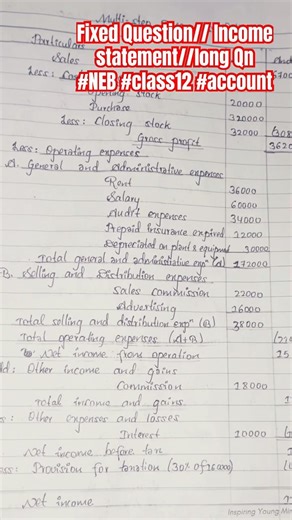 Fixed Question// Income
statement//long Qn
#NEB #class12 #account
Multi-step
Particulars
Sales
Less:
Opening stock
Purchase 20000
Less: Closing stock 32000
Gross profit 32000
Less: Operating expenses
A. General and Administrative expenses
Rent 36000
Salary 60000
Audit expenses 34000
Prepaid Insurance expired 12000
Depreciated on plant & equipment 30000
Total general and administrative expn (A) 172000
B. Selling and Distribution expenses
Sales commission 22000
Advertising 16000
Total selling and distribution expn (B) 38000
Total operating expenses (A+B)
Net income from operation
Add: Other income and gains
Commission 18000
Total income and gains
Less: Other expenses and losses
Interest 10000
Net income before tax
Less: Provision for taxation (30% of
Net income
Inspiring Young Min